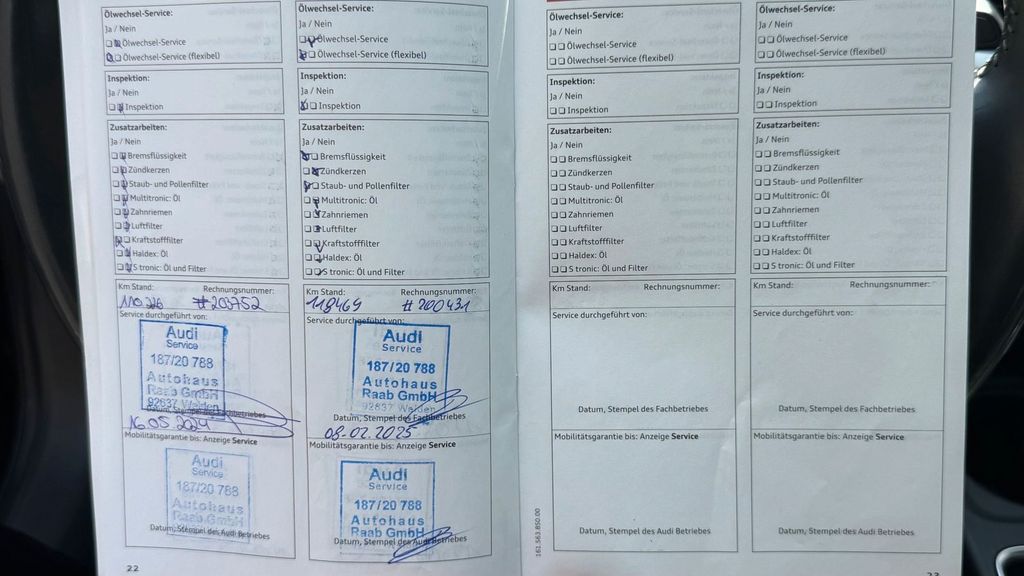 Ölwechsel-Service:
Ja / Nein
Ölwechsel-Service
Ölwechsel-Service (flexibel)
Inspektion:
Ja / Nein
Inspektion
Zusatzarbeiten:
Ja / Nein
Bremsflüssigkeit
Zündkerzen
Staub- und Pollenfilter
Multitronic: Öl
Zahnriemen
Luftfilter
Kraftstofffilter
Haldex: Öl
S tronic: Öl und Filter
Km Stand: Rechnungsnummer:
110 226 #203752
Service durchgeführt von:
Audi
Service
187/20 788
Autohaus
Raab GmbH
92637 Weiden
Datum, Stempel des Fachbetriebes
16.05.2024
Mobilitätsgarantie bis: Anzeige Service
Audi
Service
187/20 788
Autohaus
Raab GmbH
Datum, Stempel des Audi Betriebes
22
Ölwechsel-Service:
Ja / Nein
Ölwechsel-Service
Ölwechsel-Service (flexibel)
Inspektion:
Ja / Nein
Inspektion
Zusatzarbeiten:
Ja / Nein
Bremsflüssigkeit
Zündkerzen
Staub- und Pollenfilter
Multitronic: Öl
Zahnriemen
Luftfilter
Kraftstofffilter
Haldex: Öl
S tronic: Öl und Filter
Km Stand: Rechnungsnummer:
118469 #200431
Service durchgeführt von:
Audi
Service
187/20 788
Autohaus
Raab GmbH
92637 Weiden
Datum, Stempel des Fachbetriebes
08.02.2025
Mobilitätsgarantie bis: Anzeige Service
Audi
Service
187/20 788
Autohaus
Raab GmbH
Datum, Stempel des Audi Betriebes
Ölwechsel-Service:
Ja / Nein
Ölwechsel-Service
Ölwechsel-Service (flexibel)
Inspektion:
Ja / Nein
Inspektion
Zusatzarbeiten:
Ja / Nein
Bremsflüssigkeit
Zündkerzen
Staub- und Pollenfilter
Multitronic: Öl
Zahnriemen
Luftfilter
Kraftstofffilter
Haldex: Öl
S tronic: Öl und Filter
Km Stand: Rechnungsnummer:
Service durchgeführt von:
Datum, Stempel des Fachbetriebes
Mobilitätsgarantie bis: Anzeige Service
Datum, Stempel des Audi Betriebes
161.563.850.00
Ölwechsel-Service:
Ja / Nein
Ölwechsel-Service
Ölwechsel-Service (flexibel)
Inspektion:
Ja / Nein
Inspektion
Zusatzarbeiten:
Ja / Nein
Bremsflüssigkeit
Zündkerzen
Staub- und Pollenfilter
Multitronic: Öl
Zahnriemen
Luftfilter
Kraftstofffilter
Haldex: Öl
S tronic: Öl und Filter
Km Stand: Rechnungsnummer:
Service durchgeführt von:
Datum, Stempel des Fachbetriebes
Mobilitätsgarantie bis: Anzeige Service
Datum, Stempel des Audi Betriebes